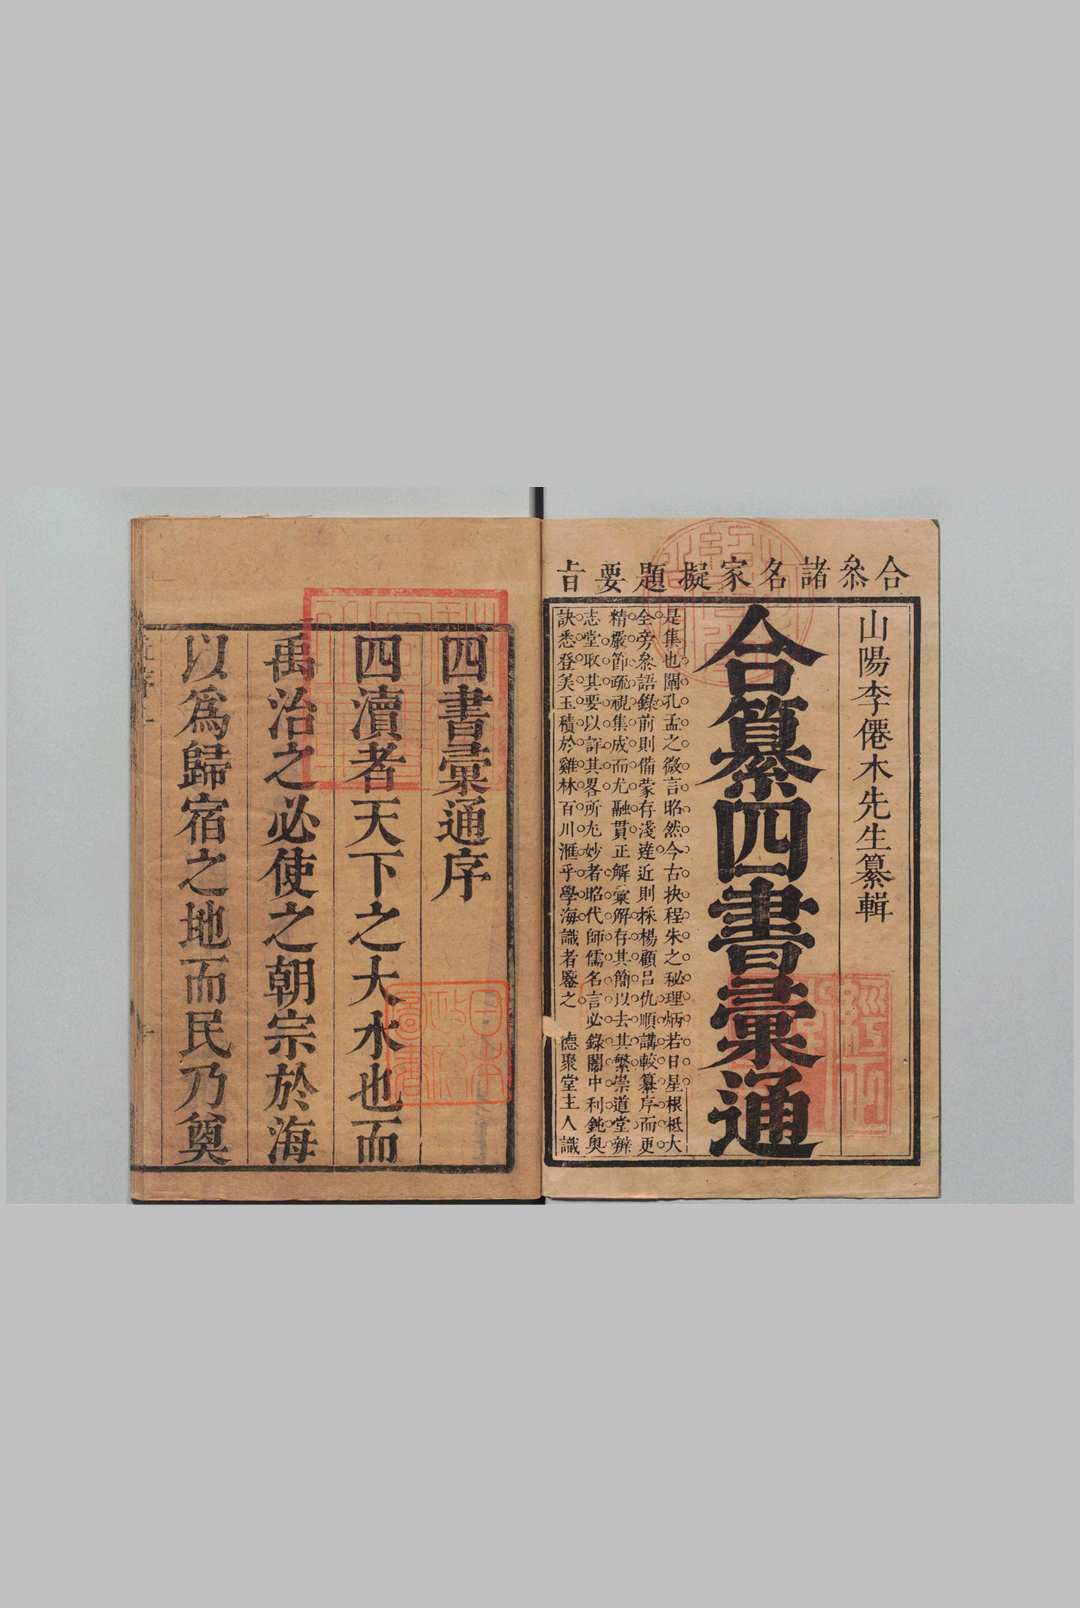 合叅諸名家擬題要旨
山陽李僊木先生纂輯
合纂四書彙通
是集也闡孔孟之微言昭然今古抉程朱之秘理炳若日星根柢大
全旁叅語錄前則備蒙存淺達近則採楊顧呂仇順講較纂序而更
精嚴節疏視集成而尤融貫正解彙解存其簡以去其繁崇道堂辨
志堂取其要以詳其畧所尤妙者昭代師儒名言必錄闈中利鈍奧
訣悉登美玉積於雞林百川滙乎學海識者鑒之 德聚堂主人識
四書彙通序
四瀆者天下之大水也而
禹治之必使之朝宗於海
以爲歸宿之地而民乃奠